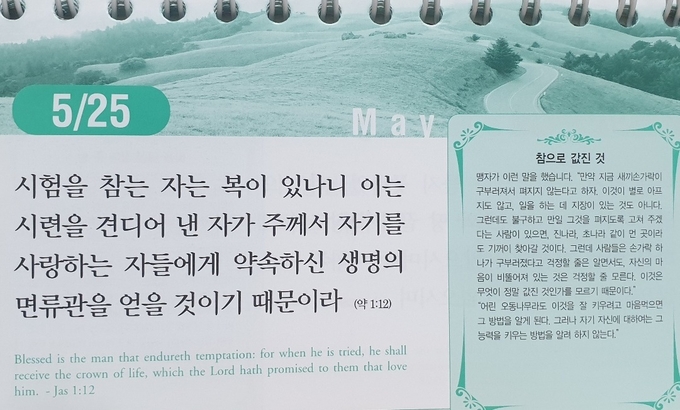 5/25
May
시험을 참는 자는 복이 있나니 이는
시련을 견디어 낸 자가 주께서 자기를
사랑하는 자들에게 약속하신 생명의
면류관을 얻을 것이기 때문이라 (약 1:12)
Blessed is the man that endureth temptation: for when he is tried, he shall
receive the crown of life, which the Lord hath promised to them that love
him. - Jas 1:12
참으로 값진 것
맹자가 이런 말을 했습니다. "만약 지금 새끼손가락이
구부러져서 펴지지 않는다고 하자. 이것이 별로 아프
지도 않고, 일을 하는 데 지장이 있는 것도 아니다.
그런데도 불구하고 만일 그것을 펴지도록 고쳐 주겠
다는 사람이 있으면, 진나라, 초나라 같이 먼 곳이라
도 기꺼이 찾아갈 것이다. 그런데 사람들은 손가락 하
나가 구부러졌다고 걱정할 줄은 알면서도, 자신의 마
음이 비뚤어져 있는 것은 걱정할 줄 모른다. 이것은
무엇이 정말 값진 것인가를 모르기 때문이다."
"어린 오동나무라도 이것을 잘 키우려고 마음먹으면
그 방법을 알게 된다. 그러나 자기 자신에 대하여는 그
능력을 키우는 방법을 알려 하지 않는다."